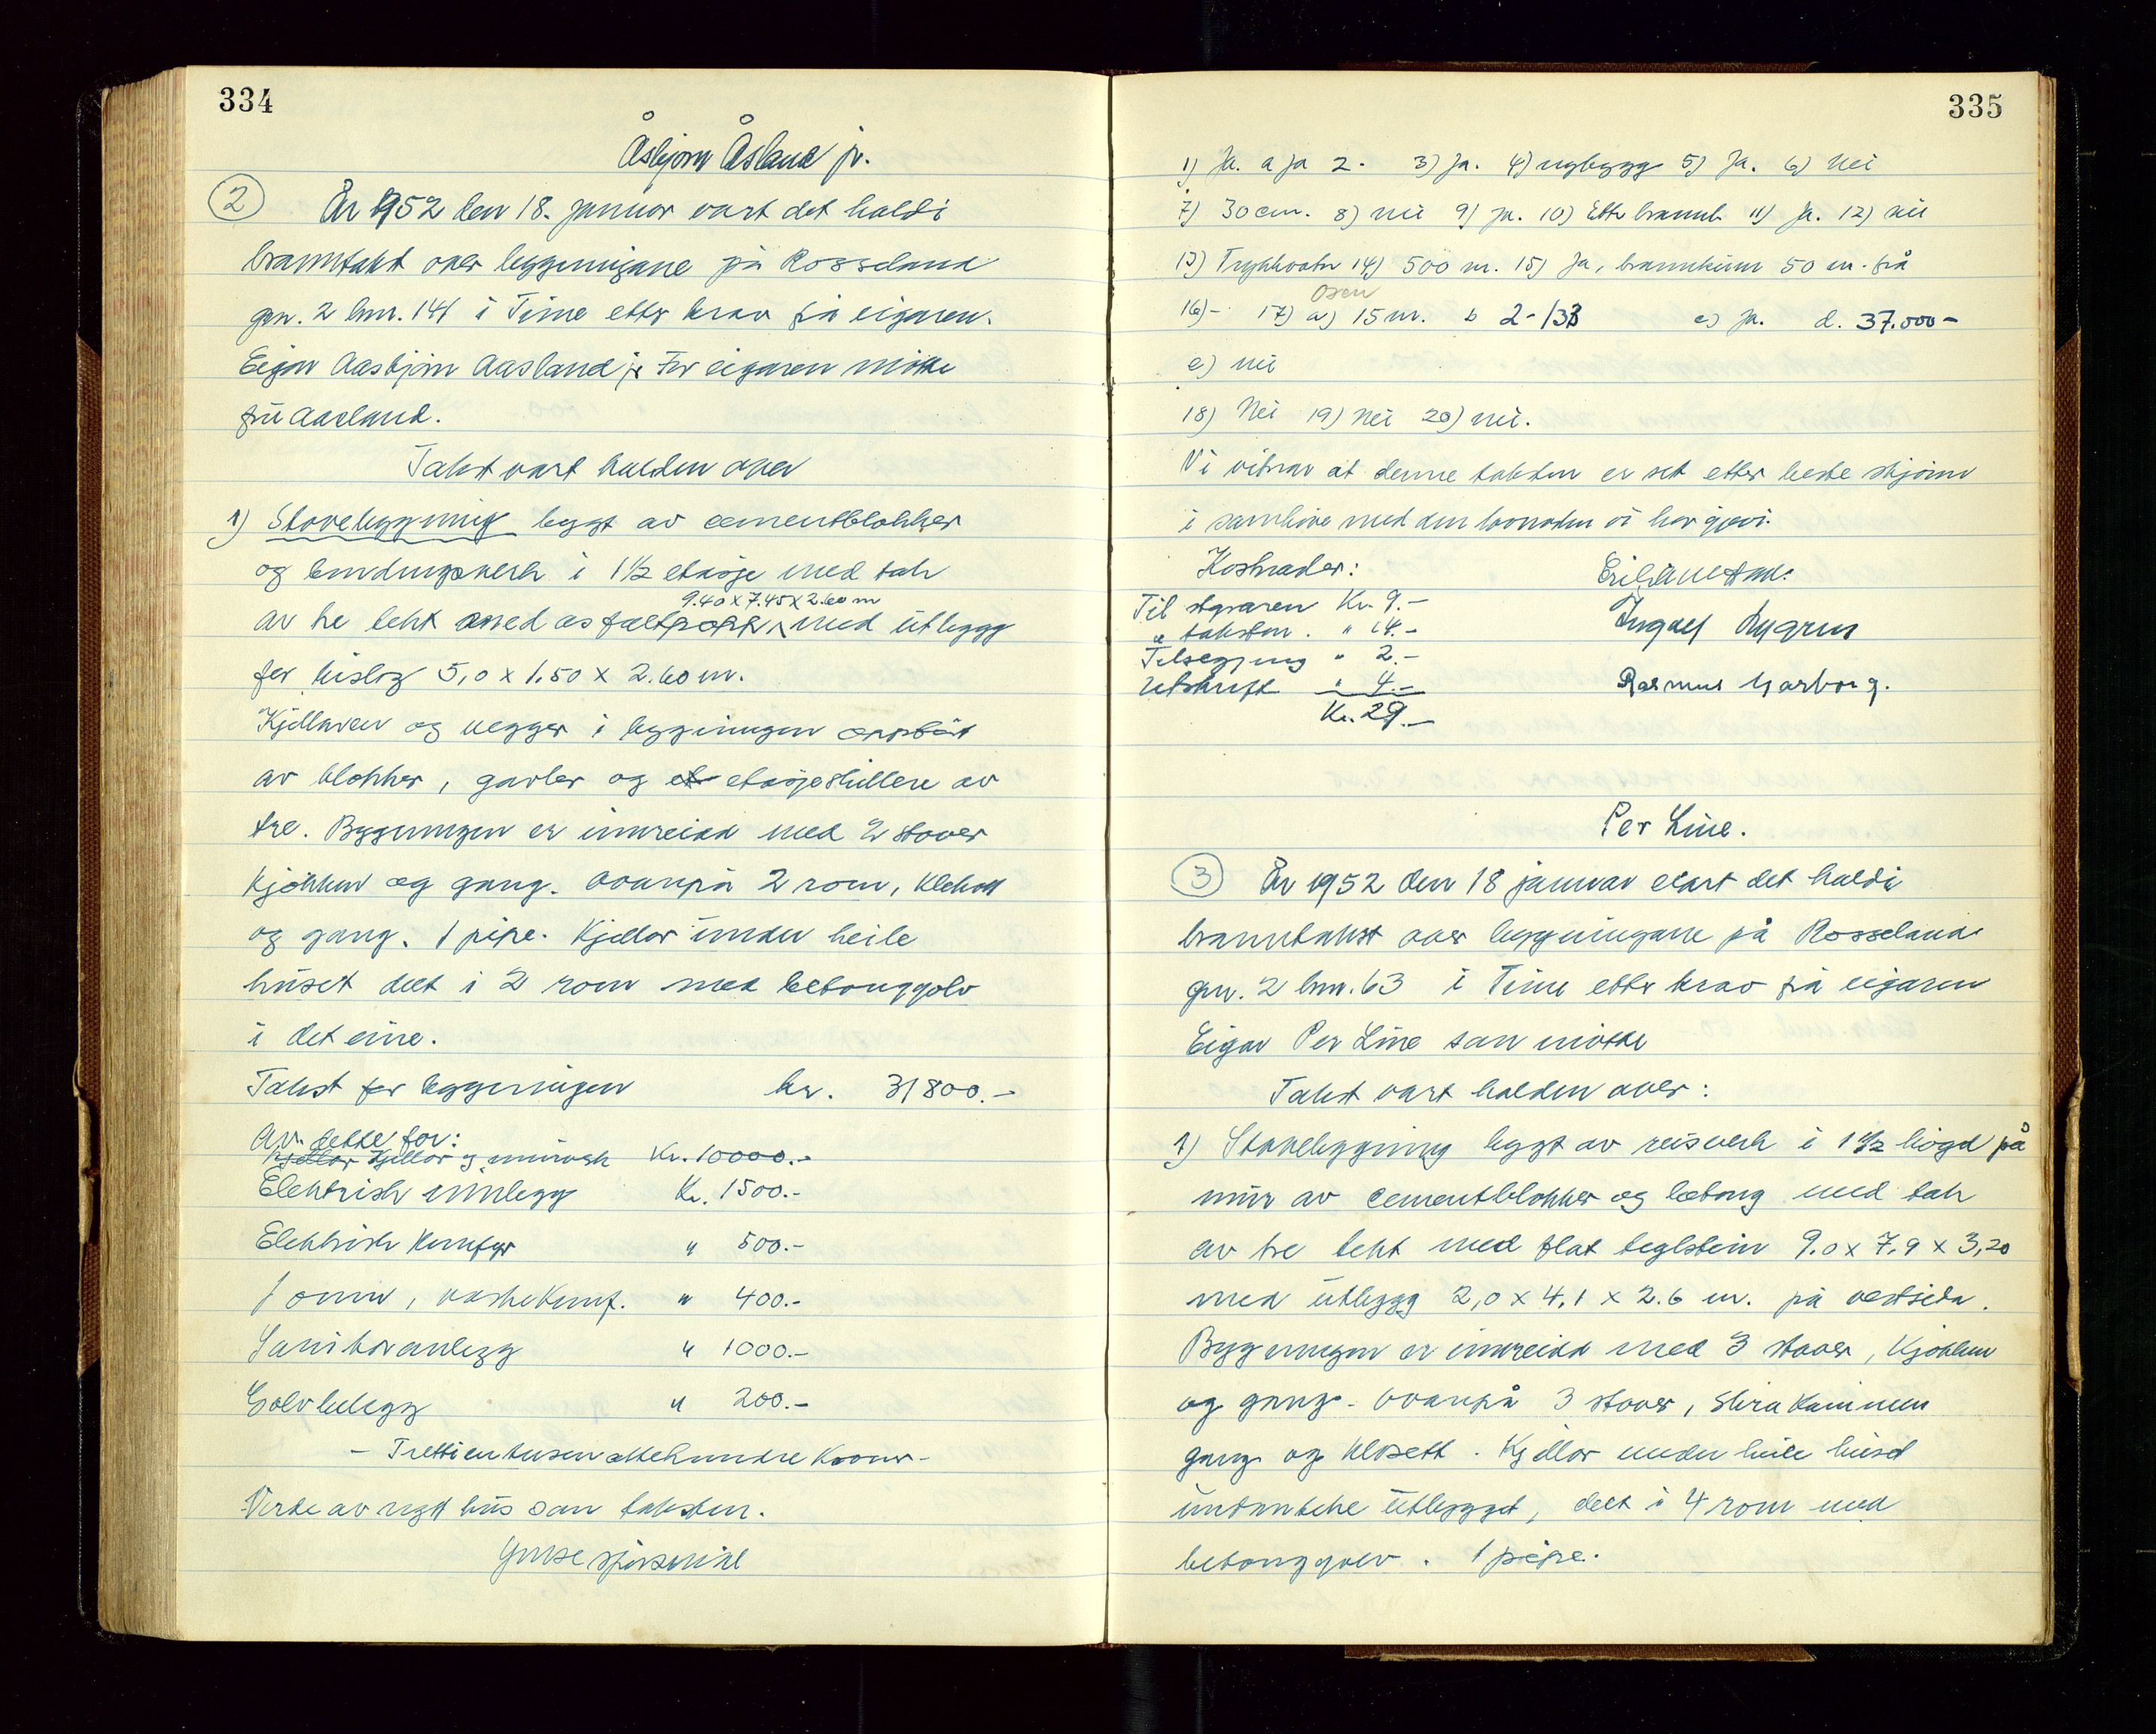 334
Åsbjørn Åsland jr.
2 År 1952 den 18. januar vart det haldi
branntakst over byggningane på Rosseland
gnr. 2 bnr. 141 i Time etter krav frå eigaren.
Eigar Aasbjørn Aasland jr For eigaren møtte
frú Aasland.
Takst vart halden over
1) Stovebyggning bygt av cementblokker
og bindingsverk i 1½ etasje med tak
9.40 x 7.45 x 2.60 m
av tre tekt med asfaltpapp med útbygg
for bislag 5,0 x 1.50 x 2.60 m.
Kjellaren og vegger i byggningen oppbút
av blokker, gavler og et etasjeskillere av
tre. Byggningen er innreidd med 2 stover
kjøkken og gang. Ovanpå 2 rom, klekott
og gang. 1 pipe. Kjellar únder heile
húset delt i 2 rom med betonggolv
i det eine.
Takst for byggningen kr. 31800.-
Av dette for:
Kjellar Kjellar og múrverk Kr. 10000.-
Elektrisk innlegg Kr. 1500.-
Elektrisk komfyr " 500.-
1 omn, vaskekomf. " 400.-
Sanitæranlegg " 1000.-
Golvbelegg " 200.-
- Trettientusenattehundre kroner -
Verde av nytt hús som taksten.
Gense spørsmål
335
1) Ja. a ja 2. 3) Ja. 4) nybygg 5) Ja. 6) Nei
7) 30 cm. 8) nei 9) Ja. 10) Ette brannb. 11) Ja. 12) nei
13) Trykkvatn 14) 500 m. 15) Ja, brannkum 50 m. frå
Osen
16) - 17) a) 15 m. b 2-133 c) Ja. d. 37.000-
e) nei
18) Nei 19) Nei 20) nei.
Vi vitnar at denne taksten er sett etter beste skjønn
i samhøve med den vonnaden vi har gjevi.
Kostnader:
Til styraren Kr. 9.-
" takstm. " 14.-
Tilseggjing " 2.-
Utskrift " 4.-
Kr. 29.-
Ingolf
Rasmus Garborg.
Per Line.
3 År 1952 den 18 januar vart det haldi
branntakst over byggningane på Rosseland
gnr. 2 bnr. 63 i Time etter krav frå eigaren
Eigar Per Line som møtte
Takst vart halden over:
1) Stovebyggning bygt av reisverk i 1 ½ høgd på
múr av cementblokker og betong med tak
av tre tekt med flat teglstein 9.0 x 7,9 x 3,20
med útbygg 2,0 x 4,1 x 2.6 m. på vestsida.
Byggningen er innreidd med 3 stover, kjøkken
og gang. Ovanpå 3 stover, skråkammen
gang og klosett. Kjellar under heile húset
úntateke útbygget, delt i 4 rom med
betonggolv. 1 pipe.